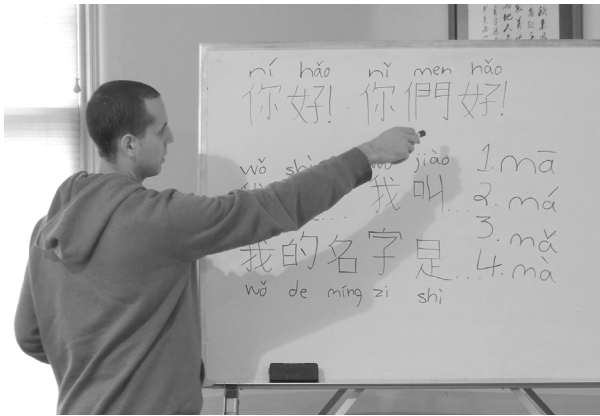 ní hǎo nǐ men hǎo
你好! · 你們好!
wǒ shì jiào
... 我叫...
我的名字是...
wǒ de míng zi shì
1. mā
2. má
3. mǎ
4. mà